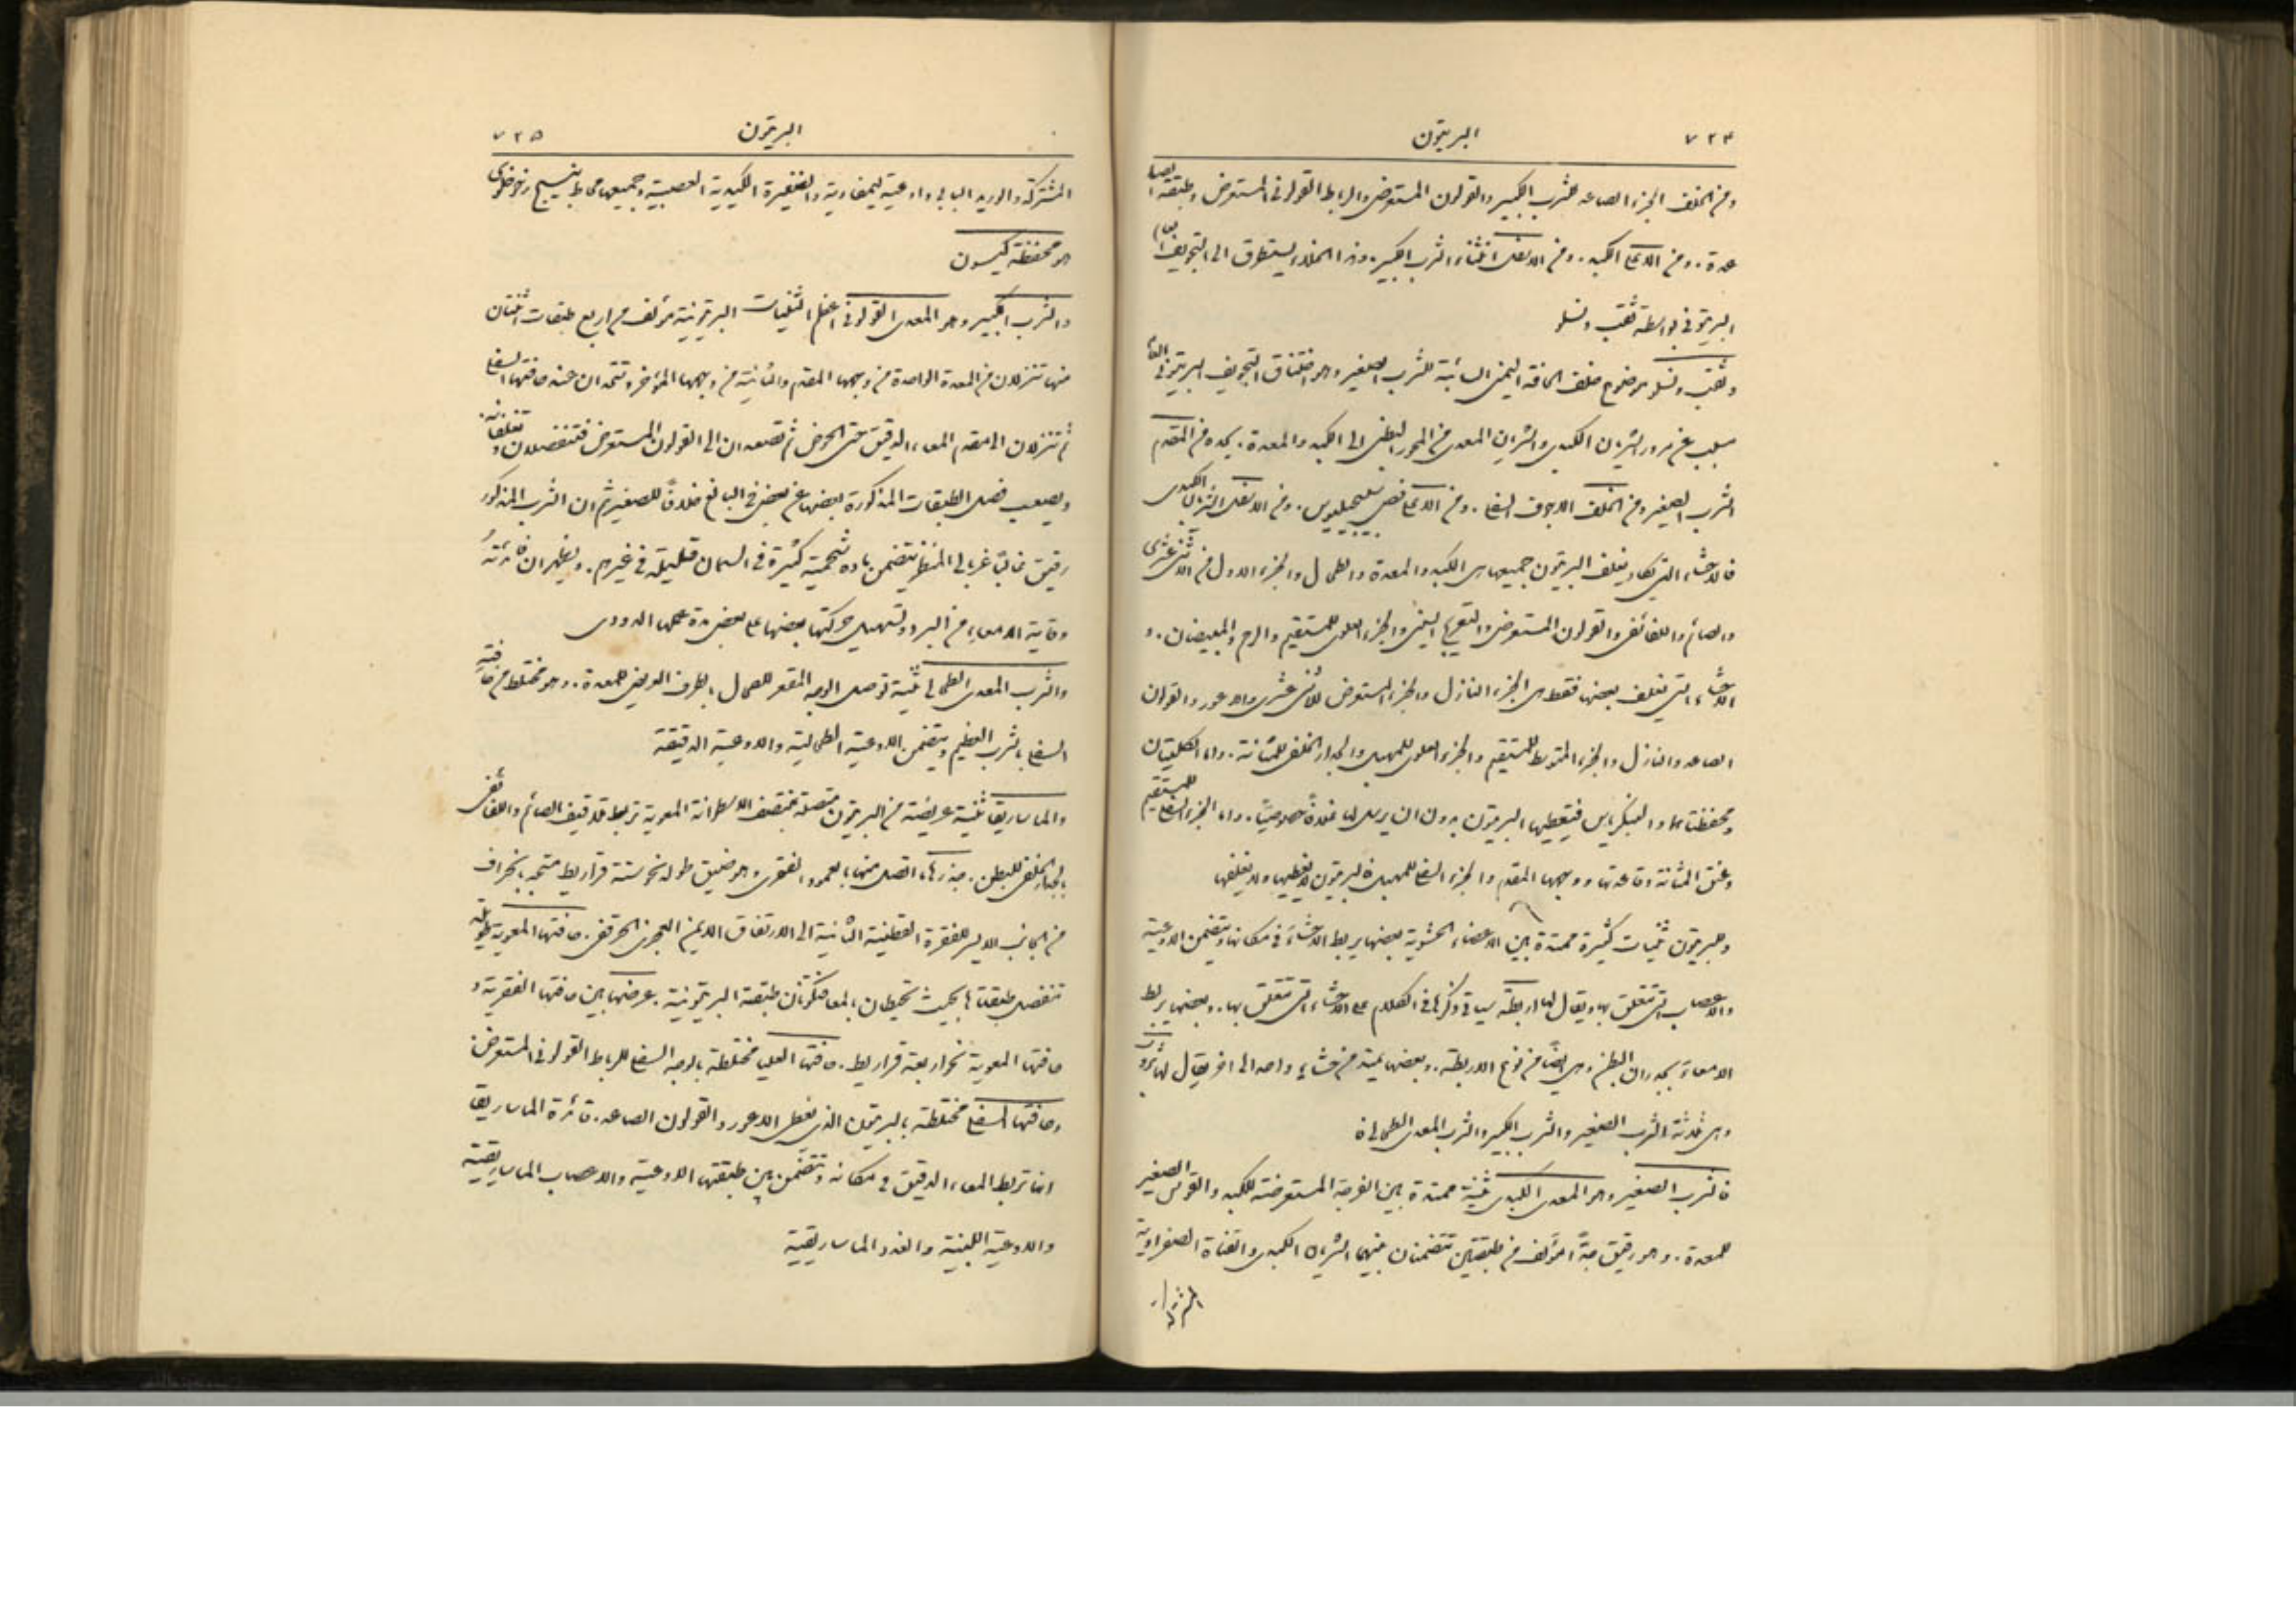 ٧٢٤ البريتون
ومن الخلف الجزء الصاعد للثرب الكبير والقولون المستعرض والرباط القولوني المستعرض وطبقته الصا
عدة. ومن الاعلى الكبد. ومن الاسفل انثناء الثرب الكبير. وهذا الخلاء يستطرق الى التجويف العا
البريتوني بواسطة ثقب ونسلو
وثقب ونسلو موضوع خلف الحافة اليمنى السائبة للثرب الصغير وهو اختناق التجويف البريتوني العام
مسبب عن مرور الشريان الكبدي والشريان المعدي من المحور البطني الى الكبد والمعدة. يحده من المقدم
الثرب الصغير ومن الخلف الاجوف السفلي. ومن الاعلى فص سبيجيليوس. ومن الاسفل الشريان الكبدي
فالاحشاء التي يكاد يغلف البريتون جميعها هي الكبد والمعدة والطحال والجزء الاول من الاثني عشري
والصائم واللفائفي والقولون المستعرض والتعريج السيني والجزء العلوي للمستقيم والرحم والمبيضان. و
الاحشاء التي يغلف بعضها فقط هي الجزء النازل والجزء المستعرض للاثني عشري والاعور والقولون
الصاعد والنازل والجزء المتوسط للمستقيم والجزء العلوي للمهبل والجدار الخلفي للمثانة. واما الكليتان
ومحفظتاهما والبنكرياس فيغطيها البريتون بدون ان يرسل لها غمداً خصوصياً. واما الجزء السفلي للمستقيم
وعنق المثانة وقاعدتها ووجهها المقدم والجزء السفلي للمهبل فالبريتون لا يغطيها ولا يغلفها
وللبريتون ثنيات كثيرة ممتدة بين الاعضاء الحشوية بعضها يربط الاحشاء في مكانها ويتضمن الاوعية
والاعصاب التي تتعلق بها ويقال لها اربطة سياتي ذكرها في الكلام على الاحشاء التي تتعلق بها. وبعضها يربط
الامعاء بجدران البطن وهي ايضاً من نوع الاربطة. وبعضها يمتد من حشاء واحد الى اخر يقال لها ثروب
وهي ثلاثة الثرب الصغير والثرب الكبير والثرب المعدي الطحالي
فالثرب الصغير وهو المعدي الكبدي ثنية ممتدة بين الفرجة المستعرضة للكبد والقوس الصغير
للمعدة. وهو رقيق جداً مؤلف من طبقتين تتضمنان بينهما الشريان الكبدي والقناة الصفراوية
البريتون ٧٢٥
المشتركة والوريد البابي واوعية ليمفاوية والضفيرة الكبدية العصبية وجميعها محاط بنسيج رخو خلوي
هو محفظة كليسون
والثرب الكبير وهو المعدي القولوني اعظم الثنيات البريتونية مؤلف من اربع طبقات اثنتان
منها تنزلان من المعدة الواحدة من وجهها المقدم والثانية من وجهها المؤخر وتتحدان عند حافتها السفلى
ثم تنزلان الى مقدم المعاء الدقيق حتى الحوض ثم تصعدان الى القولون المستعرض فتنفصلان وتغلفانه.
ويصعب فصل الطبقات المذكورة بعضها عن بعض في البالغ خلافاً للصغير ثم ان الثرب المذكور
رقيق غالباً غربالي المنظر يتضمن مادة شحمية كثيرة في السمان قليلة في غيرهم. ويظهر ان فائدته
وقاية الامعاء من البرد وتسهيل حركتها بعضها على بعض مدة عملها الدودي
والثرب المعدي الطحالي ثنية توصل الوجه المقعر للطحال بالطرف العريض للمعدة. وهو مختلط من حافته
السفلى بالثرب العظيم ويتضمن الاوعية الطحالية والاوعية الدقيقة
والماساريقا ثنية عريضة من البريتون متصلة بمنتصف الاسطوانة المعوية تربط تلافيف الصائم واللفائفي
بالجدار الخلفي للبطن. جذرها ما اتصل منها بالعمود الفقري وهو ضيق طوله نحو ستة قراريط متجه بانحراف
من الجانب الايسر للفقرة القطنية الثانية الى الارتفاق الايمن العجزي الحرقفي. حافتها المعوية طويلة
تنفصل طبقتاها بحيث تحيطان بالمعا فتكونان طبقته البريتونية. عرضها بين حافتها الفقرية و
حافتها المعوية نحو اربعة قراريط. حافتها العليا مختلطة بالوجه السفلي للرباط القولوني المستعرض
وحافتها السفلى مختلطة بالبريتون الذي يغطي الاعور والقولون الصاعد. فائدة الماساريقا
انها تربط المعاء الدقيق في مكانه وتتضمن بين طبقتيها الاوعية والاعصاب الماساريقية
والاوعية اللبنية والغدد الماساريقية